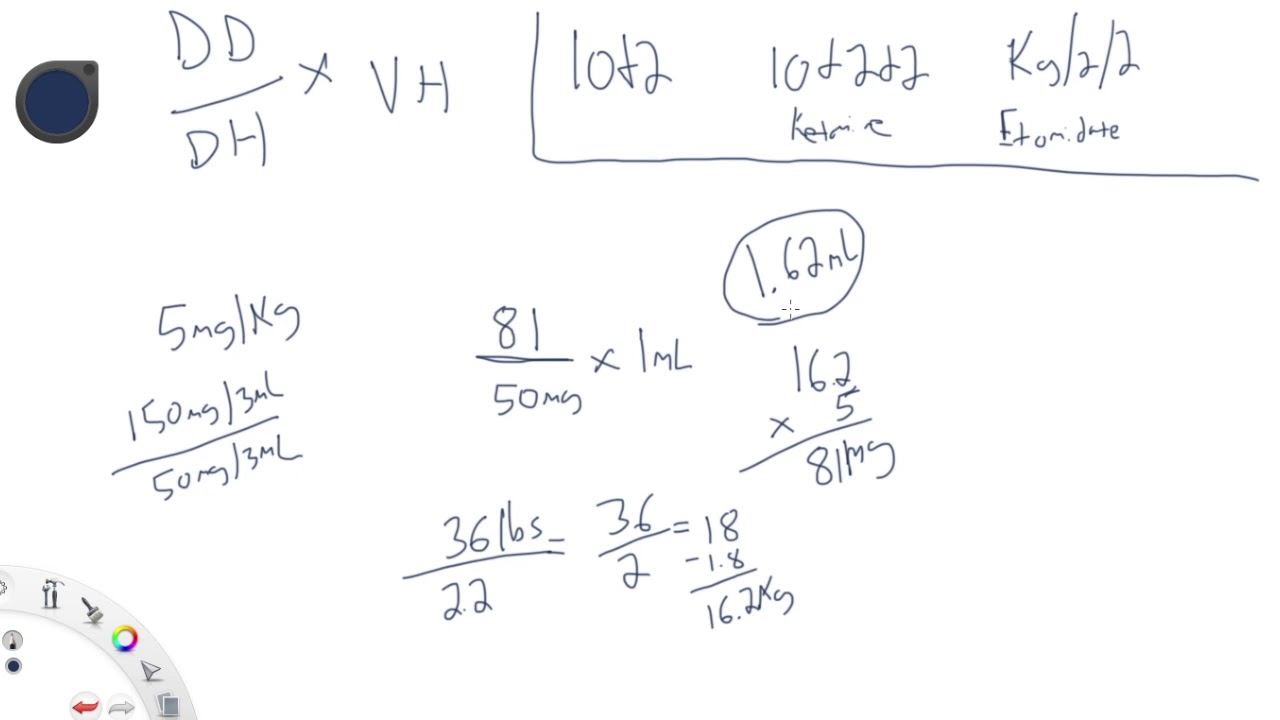 DD
DH
x VH
10+2
10+2+2
Ketamine
Kg/2/2
Etomidate
1.62mL
5mg/Kg
150mg/3mL
50mg/3mL
81
50mg
x 1mL
16.2
x 5
81mg
36lbs =
2.2
36
2
= 18
-1.8
16.2Kg